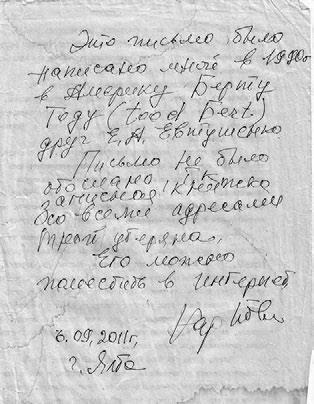 Это письмо было
написано мной в 1990г
в Америку Берту
Тоду (tood Bert)
друг Е.А. Евтушенко
Письмо не было
отослано
записная книжка
со всеми адресами
утеряна,
Его можно
поместить в интернет
6.09.2011г,
г. Ялта